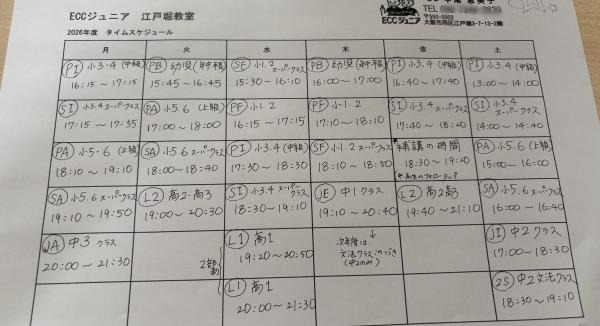 ECCジュニア 江戸堀教室
TEL
ECCジュニア
〒550-0002
大阪市西区江戸堀3-7-13-2階
2026年度 タイムスケジュール
月 火 水 木 金 土
PI 小3.4 (中級)
16:15〜17:15
PB 幼児(年中級)
15:45〜16:45
SF 小1.2 スーパークラス
15:30〜16:10
PB 幼児(年中級)
16:00〜17:00
PI 小3.4(中級)
16:40〜17:40
PI 小3.4 (中級)
13:00〜14:00
SI 小3.4 スーパークラス
17:15〜17:55
PA 小5.6 (上級)
17:00〜18:00
PF 小1.2
16:15〜17:15
PF 小1.2
17:10〜18:10
SI 小3.4 スーパークラス
17:40〜18:20
SI 小3.4 スーパークラス
14:00〜14:40
PA 小5・6 (上級)
18:10〜19:10
SA 小5.6 スーパークラス
18:00〜18:40
PI 小3.4(中級)
17:30〜18:30
SF 小1.2 スーパークラス
18:10〜18:50
*補講の時間
18:30〜19:20
PA 小5.6(上級)
15:00〜16:00
SA 小5.6 スーパークラス
19:10〜19:50
L2 高2.高3
19:00〜20:30
SI 小3.4 スーパークラス
18:30〜19:10
JE 中1 クラス
19:10〜20:40
L2 高2高3
19:40〜21:10
SA 小5.6 スーパークラス
16:00〜16:40
JA 中3 クラス
20:00〜21:30
L1 高1
19:20〜20:50
次年度は
文法クラス
(中2のみ)
JI 中2 クラス
17:00〜18:30
L1 高1
20:00〜21:30
2S 中2文法クラス
18:30〜19:10